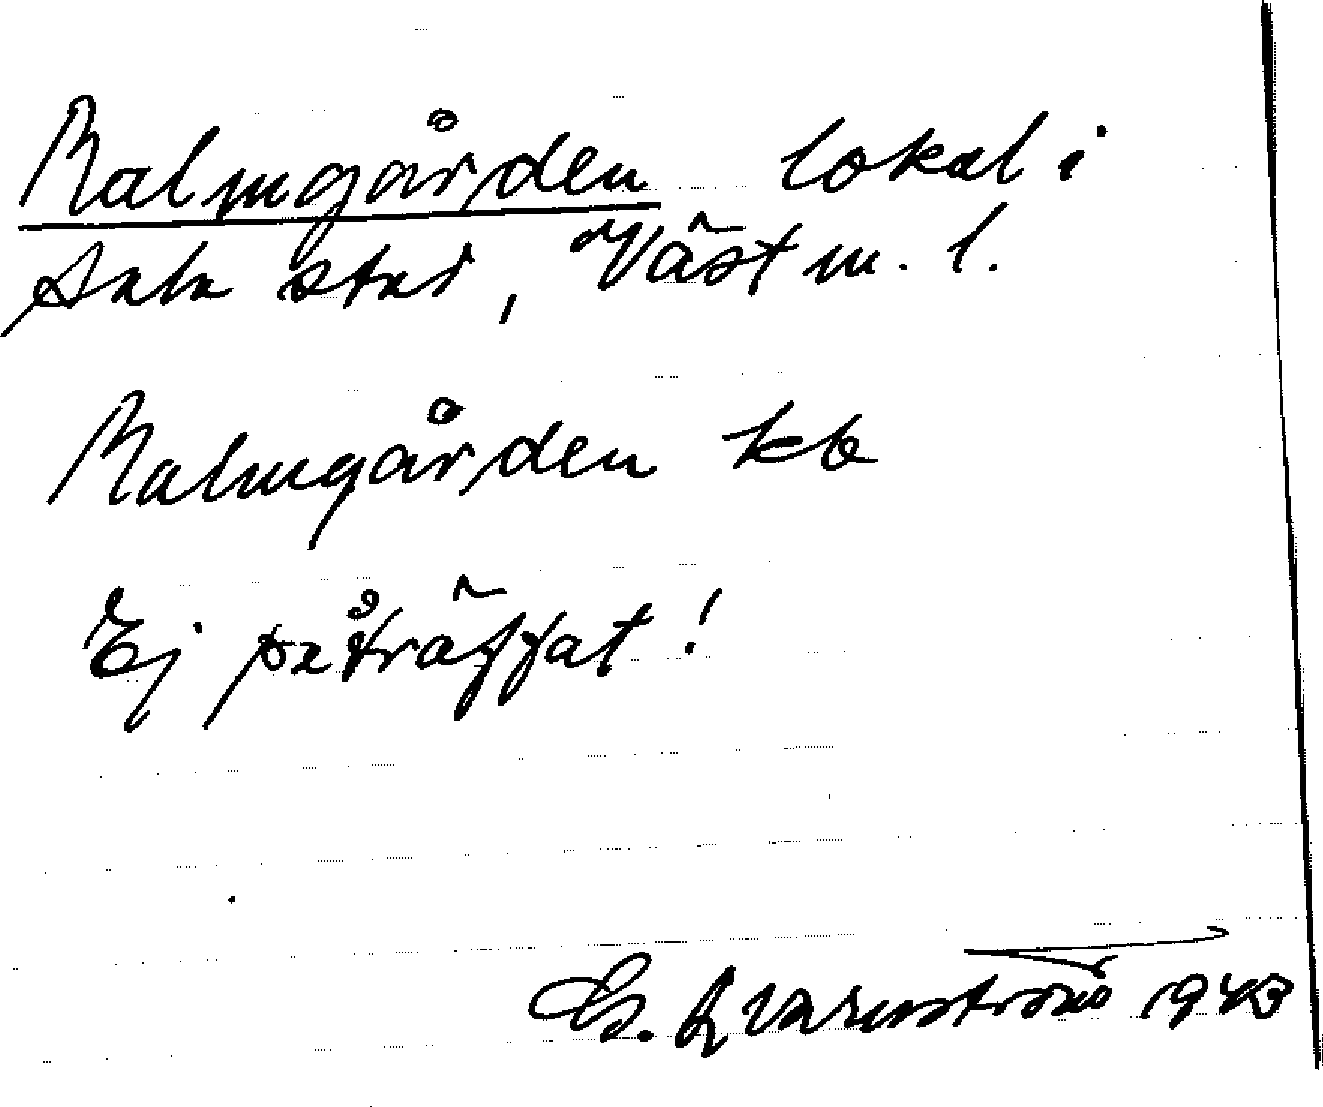 Malmgården lokal i
Sala stad, Västm. l.
Malmgården kb
Ej påträffat!
G. Kvarnström 1943